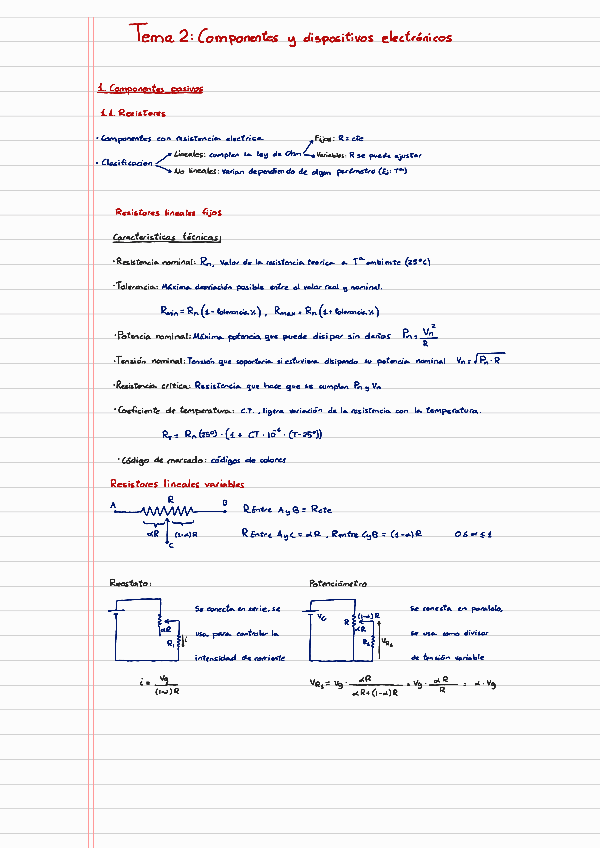 Tema 2: Componentes y dispositivos electrónicos
1. Componentes pasivos
1.1. Resistores
· Componentes con resistencia electrica
Fijos: R = cte
· Clasificacion
Lineales: cumplen la ley de Ohm
Variables: R se puede ajustar
No lineales: varian dependiendo de algun parámetro (Ej: Tª)
Resistores lineales fijos
Características técnicas:
· Resistencia nominal: Rn, Valor de la resistencia teorica a Tª ambiente (25ºC)
· Tolerancia: Máxima desviación posible entre el valor real y nominal.
Rmin = Rn (1 - tolerancia%), Rmax = Rn (1 + tolerancia%)
· Potencia nominal: Máxima potencia que puede disipar sin daños Pn = Vn²/R
· Tensión nominal: Tensión que soportaria si estuviera disipando su potencia nominal Vn = √Pn · R
· Resistencia crítica: Resistencia que hace que se cumplan Pn y Vn
· Coeficiente de temperatura: C.T., ligera variación de la resistencia con la temperatura.
RT = Rn (25º) · (1 + CT · 10⁻⁶ · (T-25º))
· Código de marcado: códigos de colores
Resistores lineales variables
A R B
R Entre A y B = R cte
αR (1-α)R
C
R Entre A y C = αR, R entre C y B = (1-α)R 0 ≤ α ≤ 1
Reostato:
Potenciómetro
Se conecta en serie, se
usa para controlar la
intensidad de corriente
αR
i
VG
R
(1-α)R
αR
Se conecta en paralelo,
se usa como divisor
de tensión variable
i = Vg/(1-α)R
= Vg · αR/(αR+(1-α)R) = Vg · αR/R = α · Vg